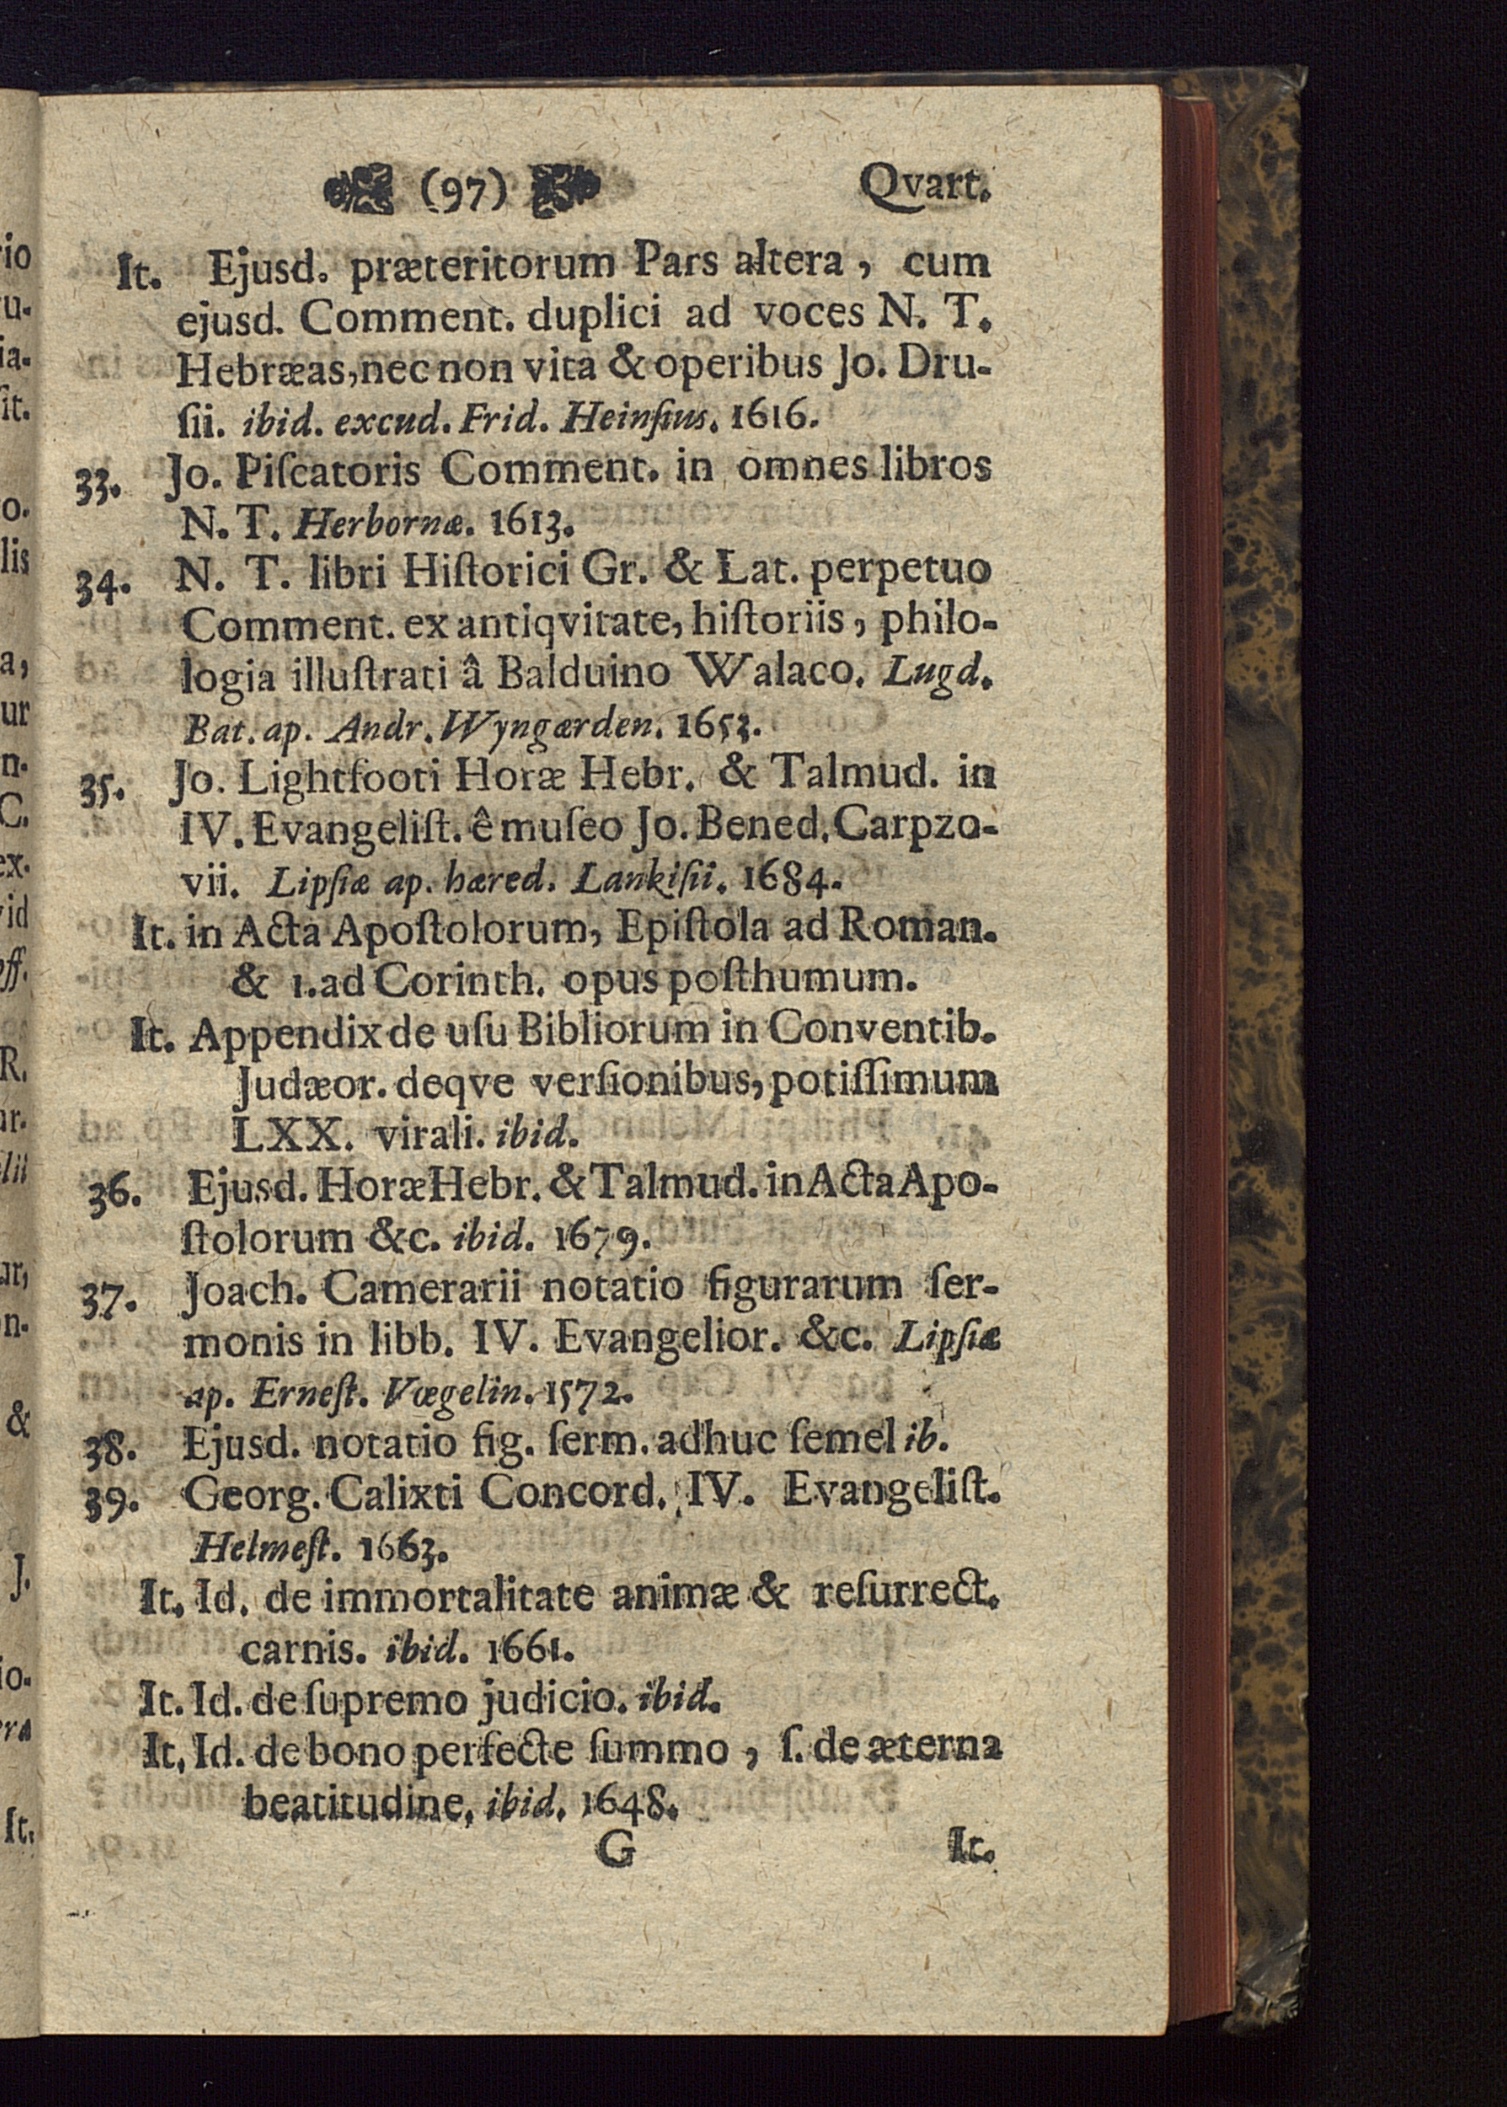 (97) Qvart.
It. Ejusd. præteritorum Pars altera, cum
ejusd. Comment. duplici ad voces N. T.
Hebræas, nec non vita & operibus Jo. Dru-
ſii. ibid. excud. Frid. Heinſius. 1616.
33. Jo. Piſcatoris Comment. in omnes libros
N. T. Herbornæ. 1613.
34. N. T. libri Hiſtorici Gr. & Lat. perpetuo
Comment. ex antiqvitate, hiſtoriis, philo-
logia illuſtrati â Balduino Walaco. Lugd.
Bat. ap. Andr. Wyngærden. 1653.
35. Jo. Lightfooti Horæ Hebr. & Talmud. in
IV. Evangeliſt. ê muſeo Jo. Bened. Carpzo-
vii. Lipſiæ ap. hæred. Lankiſii. 1684.
It. in Acta Apoſtolorum, Epiſtola ad Roman.
& 1. ad Corinth. opus poſthumum.
It. Appendix de uſu Bibliorum in Conventib.
Judæor. deqve verſionibus, potiſſimum
LXX. virali. ibid.
36. Ejusd. Horæ Hebr. & Talmud. in Acta Apo-
ſtolorum &c. ibid. 1679.
37. Joach. Camerarii notatio figurarum ſer-
monis in libb. IV. Evangelior. &c. Lipſiæ
ap. Erneſt. Vœgelin. 1572.
38. Ejusd. notatio fig. ſerm. adhuc ſemel ib.
39. Georg. Calixti Concord. IV. Evangeliſt.
Helmeſt. 1663.
It. Id. de immortalitate animæ & reſurrect.
carnis. ibid. 1661.
It. Id. de ſupremo judicio. ibid.
It. Id. de bono perfecte ſummo, ſ. de æterna
beatitudine. ibid. 1648.
G It.